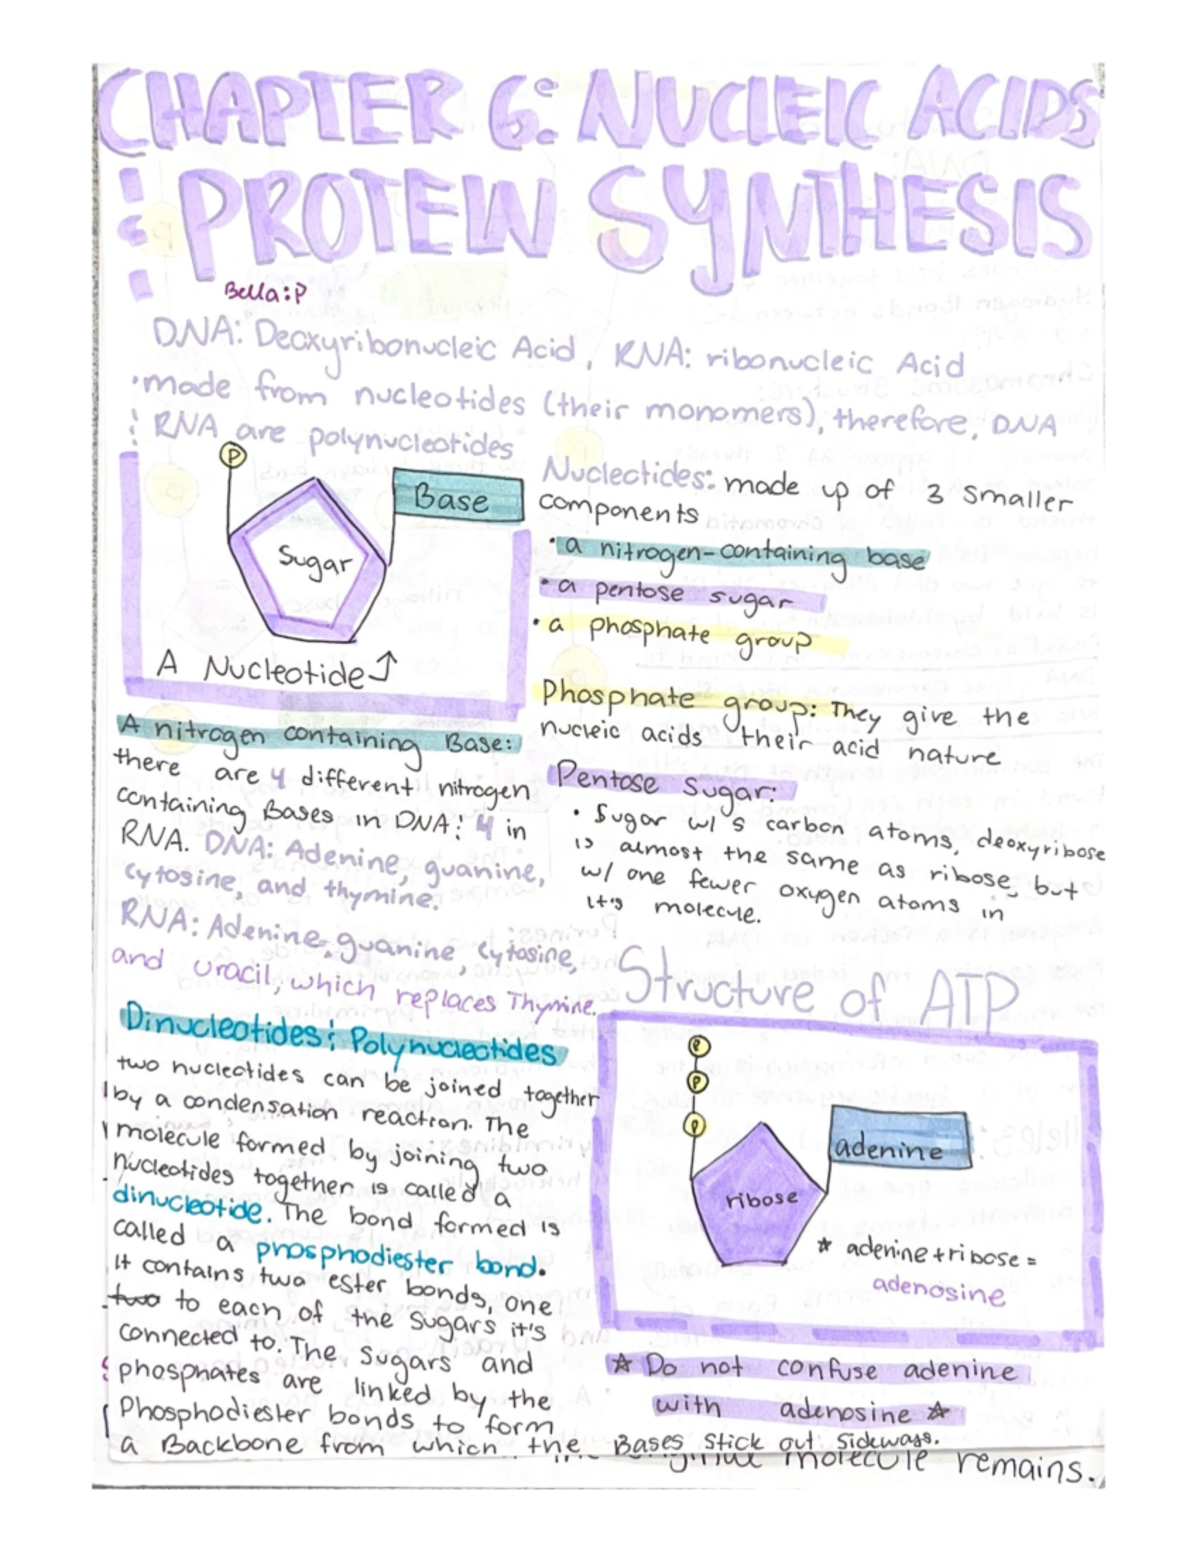 CHAPTER 6: NUCLEIC ACIDS
& PROTEIN SYNTHESIS
Bella :P
DNA: Deoxyribonucleic Acid, RNA: ribonucleic Acid
• made from nucleotides (their monomers), therefore, DNA
& RNA are polynucleotides
P
Base
Sugar
A Nucleotide ↑
Nucleotides: made up of 3 smaller
components
• a nitrogen-containing base
• a pentose sugar
• a phosphate group
Phosphate group: They give the
nucleic acids their acid nature
Pentose Sugar:
• Sugar w/ 5 carbon atoms, deoxyribose
is almost the same as ribose, but
w/ one fewer oxygen atoms in
it's molecule.
A nitrogen containing Base:
there are 4 different nitrogen
containing Bases in DNA & 4 in
RNA. DNA: Adenine, guanine,
cytosine, and thymine.
RNA: Adenine, guanine, cytosine,
and uracil, which replaces Thymine.
Dinucleotides & Polynucleotides
two nucleotides can be joined together
by a condensation reaction. The
molecule formed by joining two
nucleotides together is called a
dinucleotide. The bond formed is
called a phosphodiester bond.
It contains two ester bonds, one
two to each of the sugars it's
connected to. The sugars and
phosphates are linked by the
Phosphodiester bonds to form
a Backbone from which the Bases stick out sideways.
Structure of ATP
P
P
P
adenine
ribose
* adenine + ribose =
adenosine
☆ Do not confuse adenine
with adenosine ☆
molecule remains.